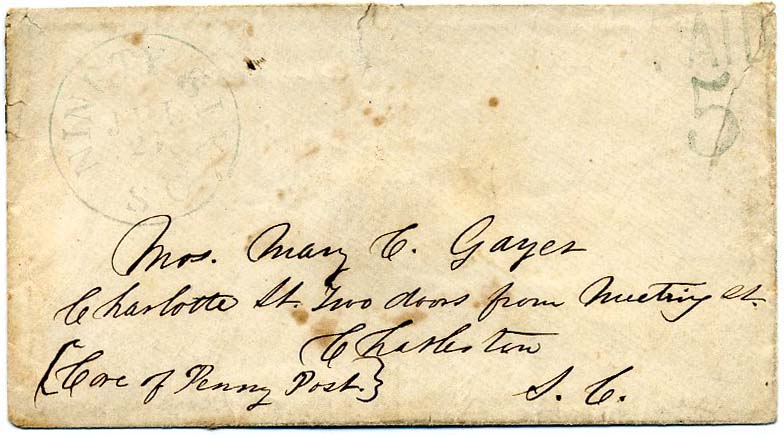 NINETY SIX S.C.
JUL
PAID
5
Mrs. Mary C. Gayer
Charlotte St. Two doors from Meeting St.
Charleston
{Care of Penny Post.}
S. C.